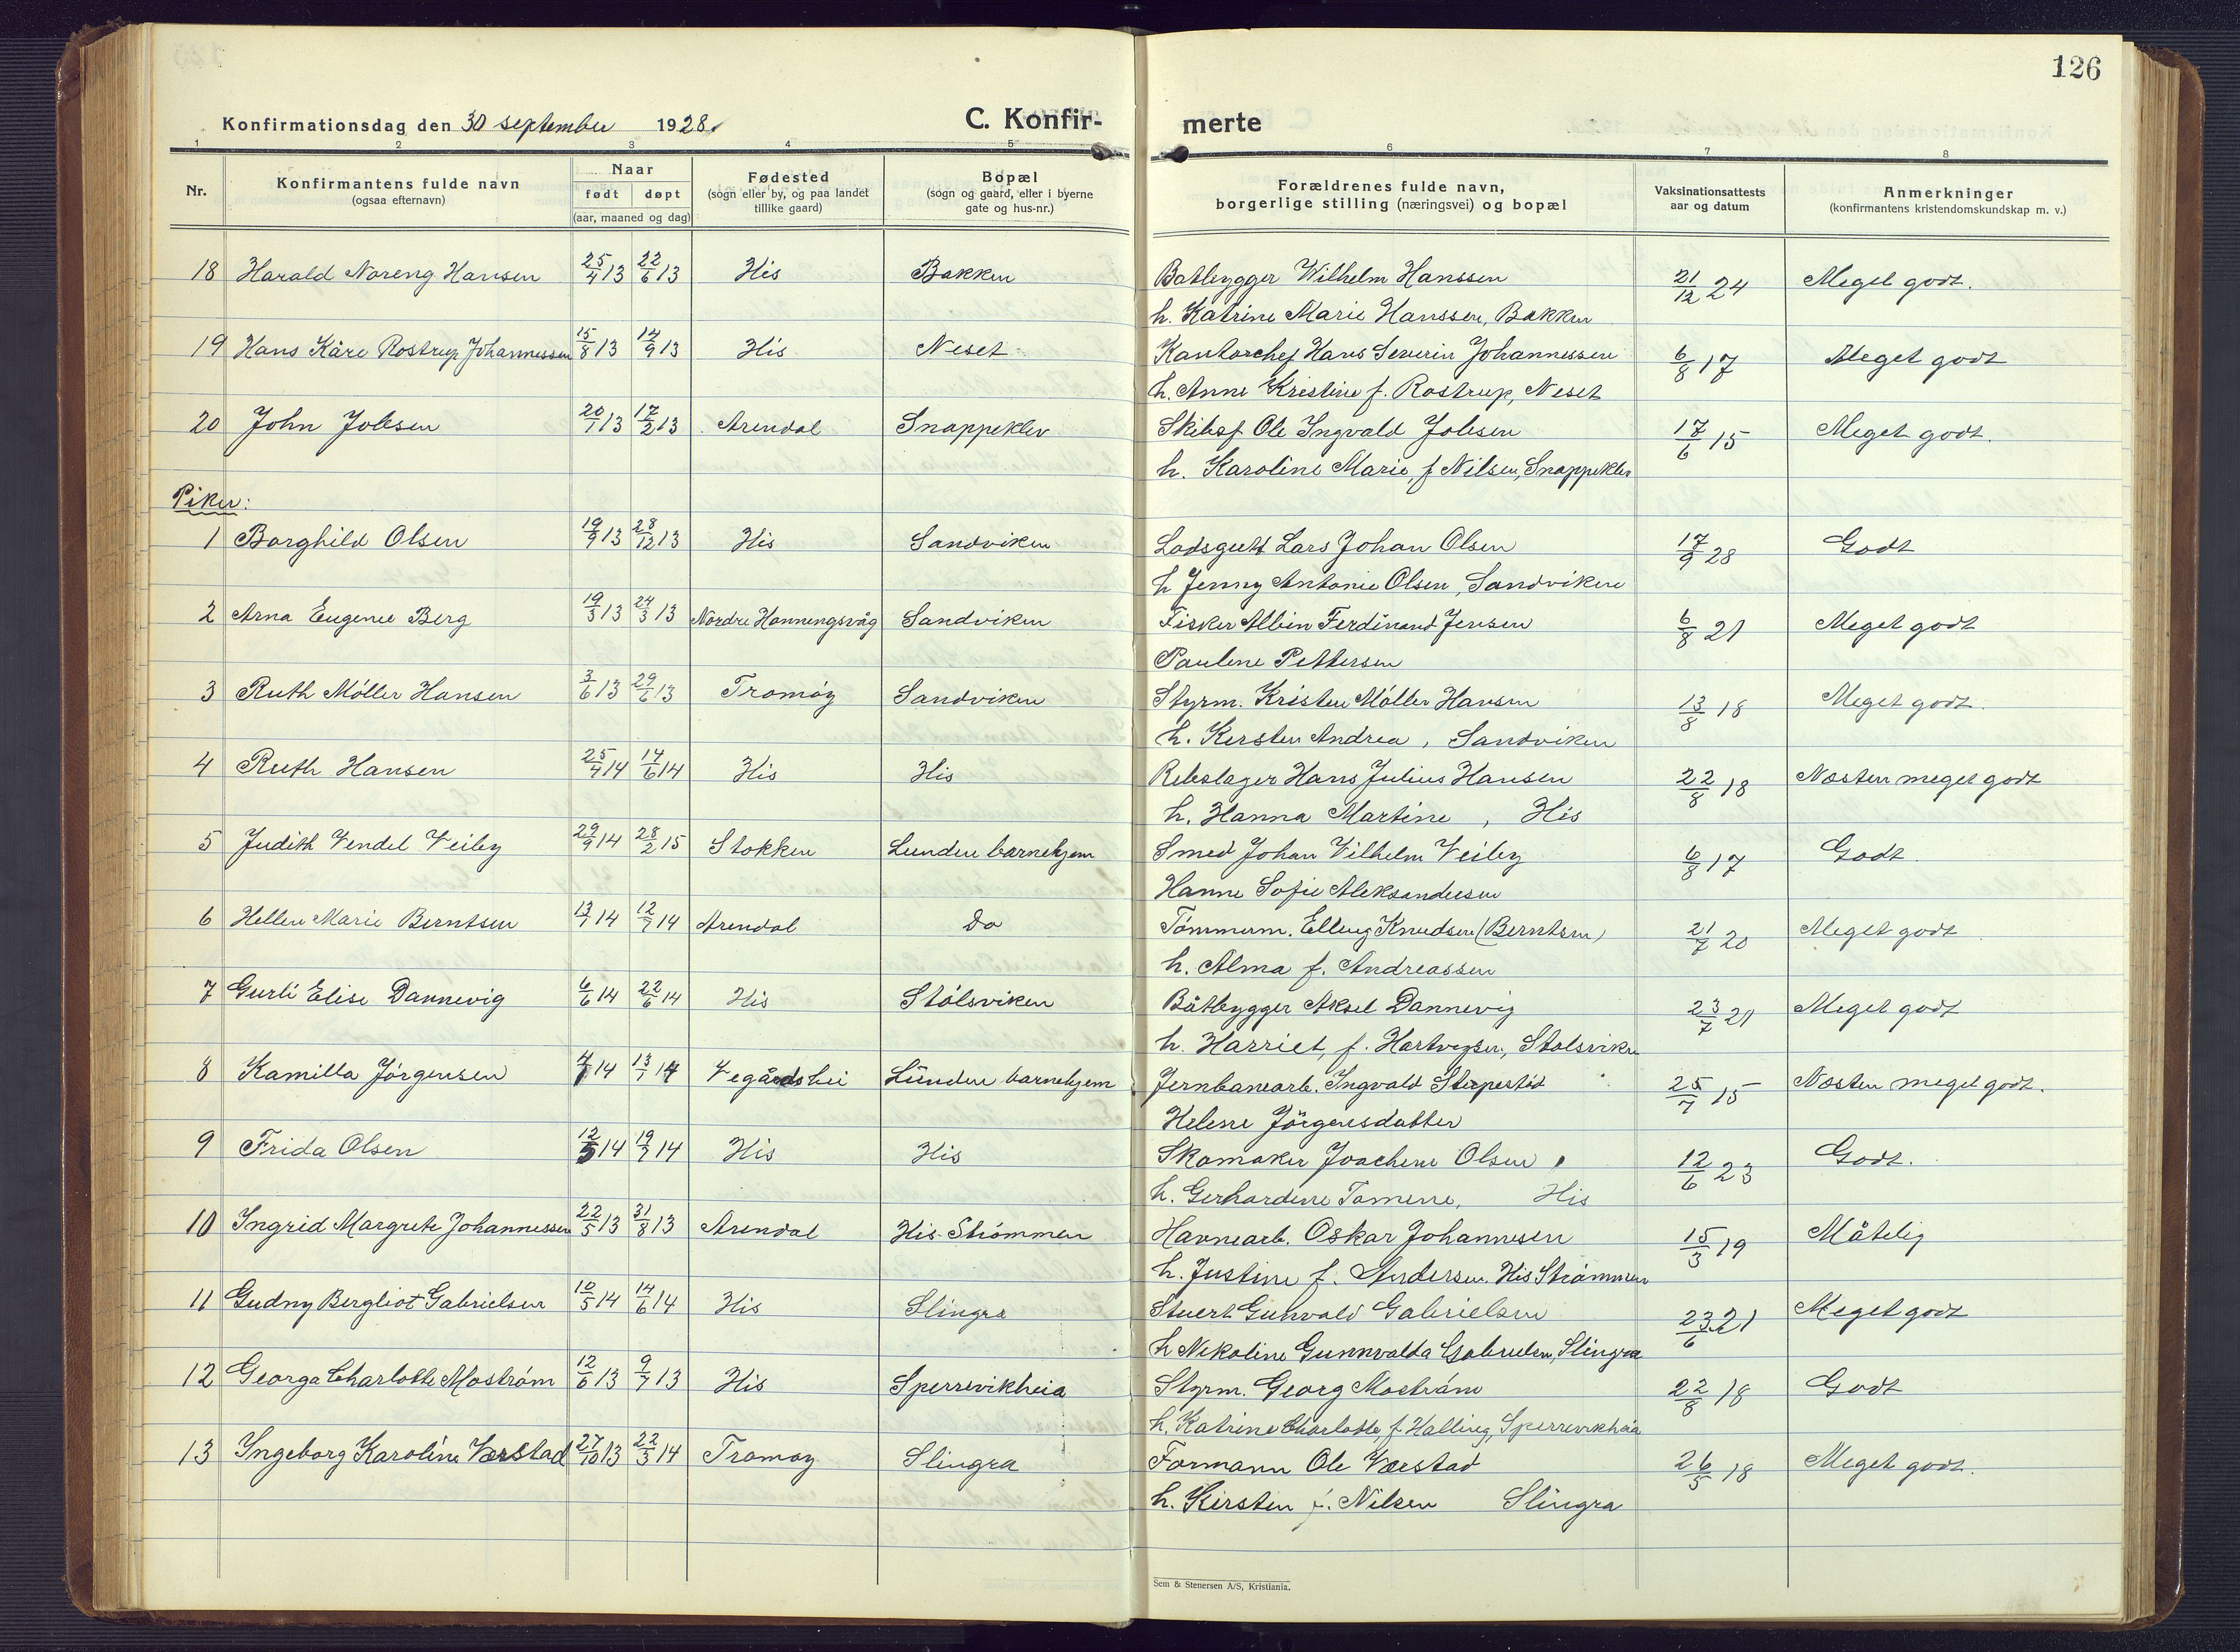 126
Konfirmationsdag den 30 september 1928. C. Konfir- merte
1 2 3 4 5 6 7 8
Nr. Konfirmantens fulde navn (ogsaa efternavn) Naar født døpt (aar, maaned og dag) Fødested (sogn eller by, og paa landet tillike gaard) Bopæl (sogn og gaard, eller i byerne gate og hus-nr.) Forældrenes fulde navn, borgerlige stilling (næringsvei) og bopæl Vaksinationsattests aar og datum Anmerkninger (konfirmantens kristendomskundskap m. v.)
18 Harald Noreng Hansen 25/4 13 22/6 13 His Bakken Batbygger Wilhelm Hanssen 21/12 24 Meget godt.
h. Katrine Marie Hanssen, Bakken
19 Hans Kåre Rostrup Johannessen 15/8 13 14/9 13 His Neset Kontorchef Hans Severin Johannessen 6/8 17 Meget godt
h. Anne Kristine f. Rostrup, Neset
20 John Jolesen 20/1 13 17/2 13 Arendal Snappeklev Skibsf Ole Ingvald Jolesen 17/6 15 Meget godt.
h. Karoline Marie, f Nilsen, Snappeklev
Piker:
1 Borghild Olsen 19/9 13 28/12 13 His Sandviken Losgutt Lars Johan Olsen 17/9 28 Godt
h Jenny Antonie Olsen, Sandviken
2 Arna Eugenie Berg 19/3 13 24/3 13 Nordre Honningsvåg Sandviken Fisker Albin Ferdinand Jensen 6/8 21 Meget godt
Pauline Pettersen
3 Ruth Møller Hansen 3/6 13 29/6 13 Tromøy Sandviken Styrm. Kristen Møller Hansen 13/8 18 Meget godt.
h. Kersten Andrea, Sandviken
4 Ruth Hansen 25/4 14 14/6 14 His His Rebslager Hans Julius Hansen 22/8 18 Næsten meget godt
h. Hanna Martine, His
5 Judith Vendel Veiby 29/9 14 28/2 15 Stokken Lunden barnehjem Smed Johan Vilhelm Veiby 6/8 17 Godt
Hanne Sofie Aleksandersen
6 Hellen Marie Berntsen 13/1 14 12/7 14 Arendal Do Tømmerm. Elling Knudsen (Berntsen) 21/7 20 Meget godt
h. Alma f. Andreassen
7 Gurli Elise Dannevig 6/6 14 22/6 14 His Stølsviken Båtbygger Aksel Dannevig 23/7 21 Meget godt
h. Harriet, f. Hartvigsen, Stolsviken
8 Kamilla Jørgensen 4/1 14 13/1 14 Vegårdshei Lunden barnehjem Jernbanearb. Ingvald 25/7 15 Næsten meget godt.
Helene Jörgensdatter
9 Frida Olsen 12/5 14 19/7 14 His His Skomaker Joachim Olsen 12/6 23 Godt.
h. Gerhardine Tomine, His
10 Ingrid Margrete Johannessen 22/5 13 31/8 13 Arendal His-Strømmen Havnearb. Oskar Johannesen 15/3 19 Måtelig
h. Justine f. Andersen. His Strømmen
11 Gudny Bergliot Gabrielsen 10/5 14 14/6 14 His Slingra Stuert Gunvald Gabrielsen 23/6 21 Meget godt
h Nikoline Gunnvalda Gabrielsen, Slingra
12 Georga Charlotte Mostrøm 12/6 13 9/7 13 His Sperrevikheia Styrm. Georg Mostrøm 22/8 18 Godt
h. Katrine Charlotte, f. Halling, Sperrevikheia
13 Ingeborg Karoline Værstad 27/10 13 22/3 14 Tromøy Slingra Formann Ole Værstad 26/5 18 Meget godt.
h. Kirsten f. Nilsen Slingra
Sem & Stenersen A/S, Kristiania.